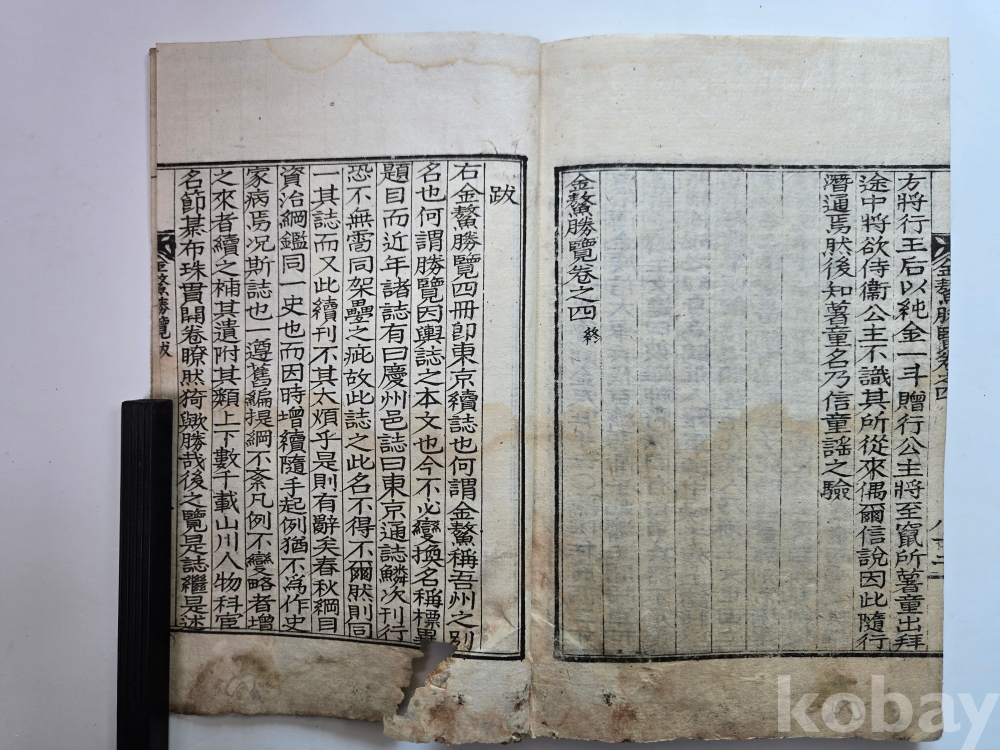 方將行王后以純金一斗贈行公主將至竄所薯童出拜
途中將欲侍衛公主不識其所從來偶爾信說因此隨行
潛通焉然後知薯童名乃信童謠之驗
金鰲勝覽卷之四 終
金鰲勝覽卷之四
八十二
跋
右金鰲勝覽四冊卽東京續誌也何謂金鰲稱吾州之別
名也何謂勝覽因輿誌之本文也今不必變換名稱標異
題目而近年諸誌有曰慶州邑誌曰東京通誌鱗次刊行
恐不無雷同架疊之疵故此誌之此名不得不爾然則同
一其誌而又此續刊不其太煩乎是則有辭矣春秋綱目
資治綱鑑同一史也而因時增續隨手起例猶不爲作史
家病焉况斯誌也一遵舊編提綱不紊凡例不變略者增
之來者續之補其遺附其類上下數千載山川人物科宦
名節棊布珠貫開卷瞭然猗歟勝哉後之覽是誌繼是述
金鰲勝覽跋
kobay